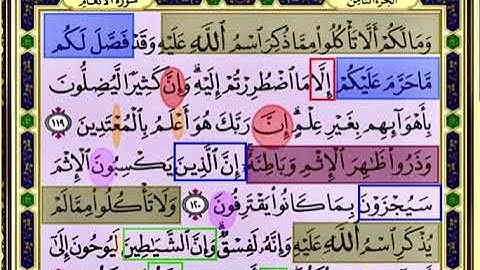 الجزء الثامن سورة الأنعام
وَمَا لَكُمْ أَلَّا تَأْكُلُوا۟ مِمَّا ذُكِرَ ٱسْمُ ٱللَّهِ عَلَيْهِ وَقَدْ فَصَّلَ لَكُم
مَّا حَرَّمَ عَلَيْكُمْ إِلَّا مَا ٱضْطُرِرْتُمْ إِلَيْهِ ۗ وَإِنَّ كَثِيرًا لَّيُضِلُّونَ
بِأَهْوَآئِهِم بِغَيْرِ عِلْمٍ ۗ إِنَّ رَبَّكَ هُوَ أَعْلَمُ بِٱلْمُعْتَدِينَ ١١٩
وَذَرُوا۟ ظَٰهِرَ ٱلْإِثْمِ وَبَاطِنَهُۥٓ ۚ إِنَّ ٱلَّذِينَ يَكْسِبُونَ ٱلْإِثْمَ
سَيُجْزَوْنَ بِمَا كَانُوا۟ يَقْتَرِفُونَ ١٢٠ وَلَا تَأْكُلُوا۟ مِمَّا لَمْ
يُذْكَرِ ٱسْمُ ٱللَّهِ عَلَيْهِ وَإِنَّهُۥ لَفِسْقٌ ۗ وَإِنَّ ٱلشَّيَٰطِينَ لَيُوحُونَ إِلَىٰٓ